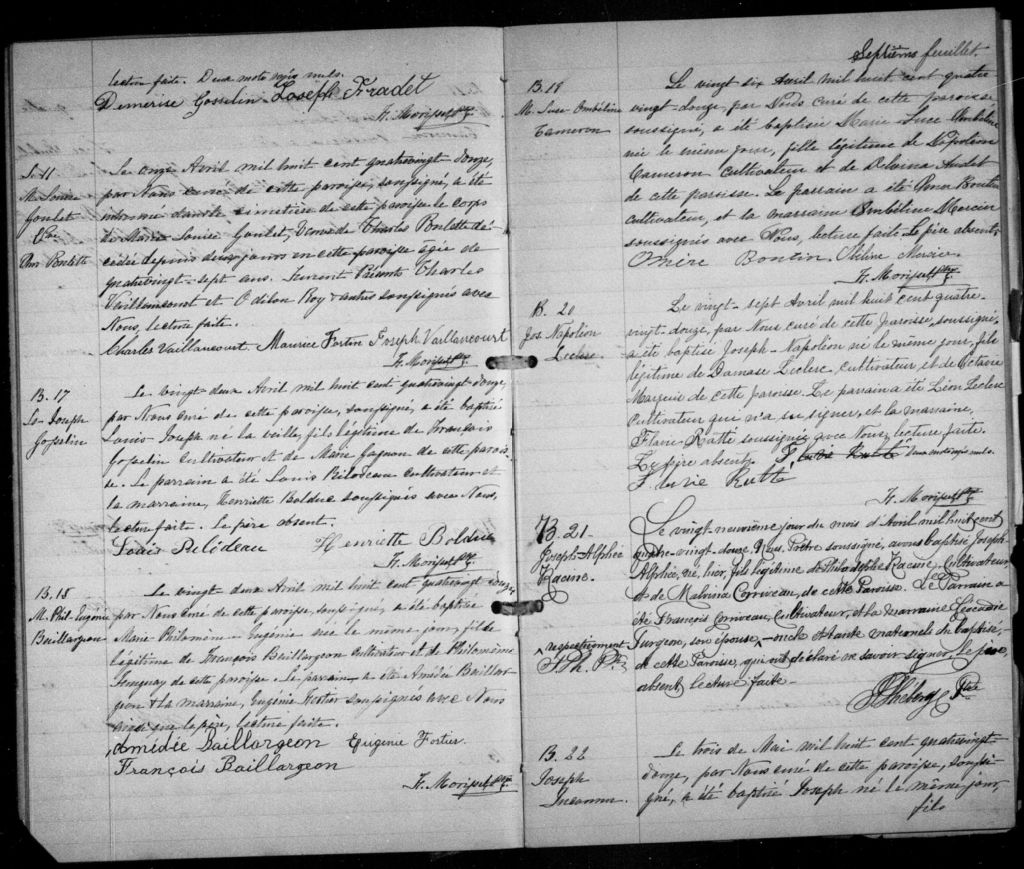 lecture faite. Deux mots rayés nuls.
Demerise Gosselin Joseph Fradet
F. Morisset Ptre.
S. 11
M. Louise
Goulet
Vve
Chs Pouliotte
Le onze Avril mil huit cent quatrevingt douze,
par Nous curé de cette paroisse, soussigné, a été
inhumé dans le cimetière de cette paroisse le corps
de Marie Louise Goulet, Veuve de Charles Pouliotte dé-
cédée depuis deux jours en cette paroisse agée de
quatrevingt-sept ans. Furent Présents Charles
Vaillancourt et Odilon Roy & autres soussignés avec
Nous, lecture faite.
Charles Vaillancourt Maurice Fortin Joseph Vaillancourt
F. Morisset Ptre.
B. 17
Ls Joseph
Gosselin
Le vingt deux Avril mil huit cent quatrevingt douze,
par Nous curé de cette paroisse, soussigné, a été baptisé
Louis Joseph né la veille, fils légitime de François
Gosselin cultivateur et de Marie Gagnon de cette parois-
se. Le parrain a été Louis Bilodeau cultivateur et
la marraine, Henriette Bolduc soussignés avec Nous,
lecture faite. Le père absent.
Louis Bilodeau Henriette Bolduc
F. Morisset Ptre.
B. 18
M. Phil. Eugénie
Baillargeon
Le vingt deux Avril mil huit cent quatrevingt douze
par Nous curé de cette paroisse, soussigné, a été baptisée
Marie Philomène Eugénie née le même jour, fille
légitime de François Baillargeon cultivateur et de Philomène
de cette paroisse. Le parrain a été Amédée Baillar-
geon & la marraine, Eugénie Fortier soussignés avec Nous
ainsi que le père, lecture faite.
Amédée Baillargeon Eugenie Fortier
François Baillargeon
F. Morisset Ptre.
Septième feuillet.
B. 19
M. Luce Ombéline
Cameron
Le vingt six Avril mil huit cent quatre-
vingt-douze, par Nous curé de cette paroisse
soussigné, a été baptisée Marie Luce Ombéline
née le même jour, fille légitime de Napoléon
Cameron cultivateur et de Delvina Audet
de cette paroisse. Le parrain a été Omer Boutin
cultivateur, et la marraine Ombéline Mercier
soussignés avec Nous, lecture faite. Le père absent.
Omère Boutin Mercier
F. Morisset Ptre.
B. 20
Jos. Napoléon
Leclerc
Le vingt-sept Avril mil huit cent quatre-
vingt-douze, par Nous curé de cette Paroisse, soussigné,
a été baptisé Joseph-Napoléon né le même jour, fils
légitime de Damase Leclerc Cultivateur et de Octavie
de cette paroisse. Le parrain a été Léon Leclerc
Cultivateur qui n'a su signer, et la marraine,
Flavie Ratté soussignée avec Nous, lecture faite.
Le père absent. Flavie Ratté Deux mots rayés nuls.
Flavie Ratté
F. Morisset Ptre.
B. 21.
Joseph-Alphée
Racine.
Le vingt-neuvième jour du mois d'Avril mil huit cent
quatre-vingt-douze, Nous, Prêtre soussigné, avons baptisé Joseph-
Alphée, né, hier, fils légitime de Philadelphe Racine, Cultivateur,
et de Malvina Corriveau, de cette Paroisse. Le Parrain a
été François Corriveau, Cultivateur, et la Marraine Léocadie
Turgeon, son épouse, - oncle et tante maternels du baptisé,
de cette Paroisse, qui ont déclaré ne savoir signer. Le père,
absent. Lecture faite.
respectivement
Ptre
B. 22
Joseph
Inconnu.
Le trois de Mai mil huit cent quatrevingt-
douze, par Nous curé de cette paroisse, soussi-
gné, a été baptisé Joseph né le même jour,
fils